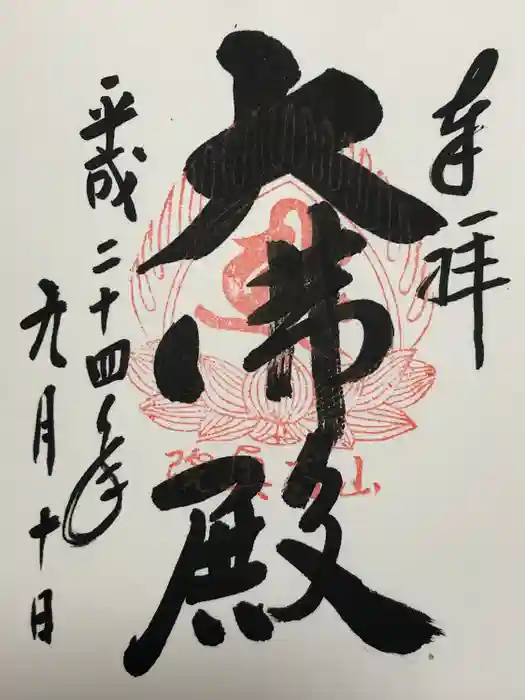 奉拝
大佛殿
平成二十四年
九月十日